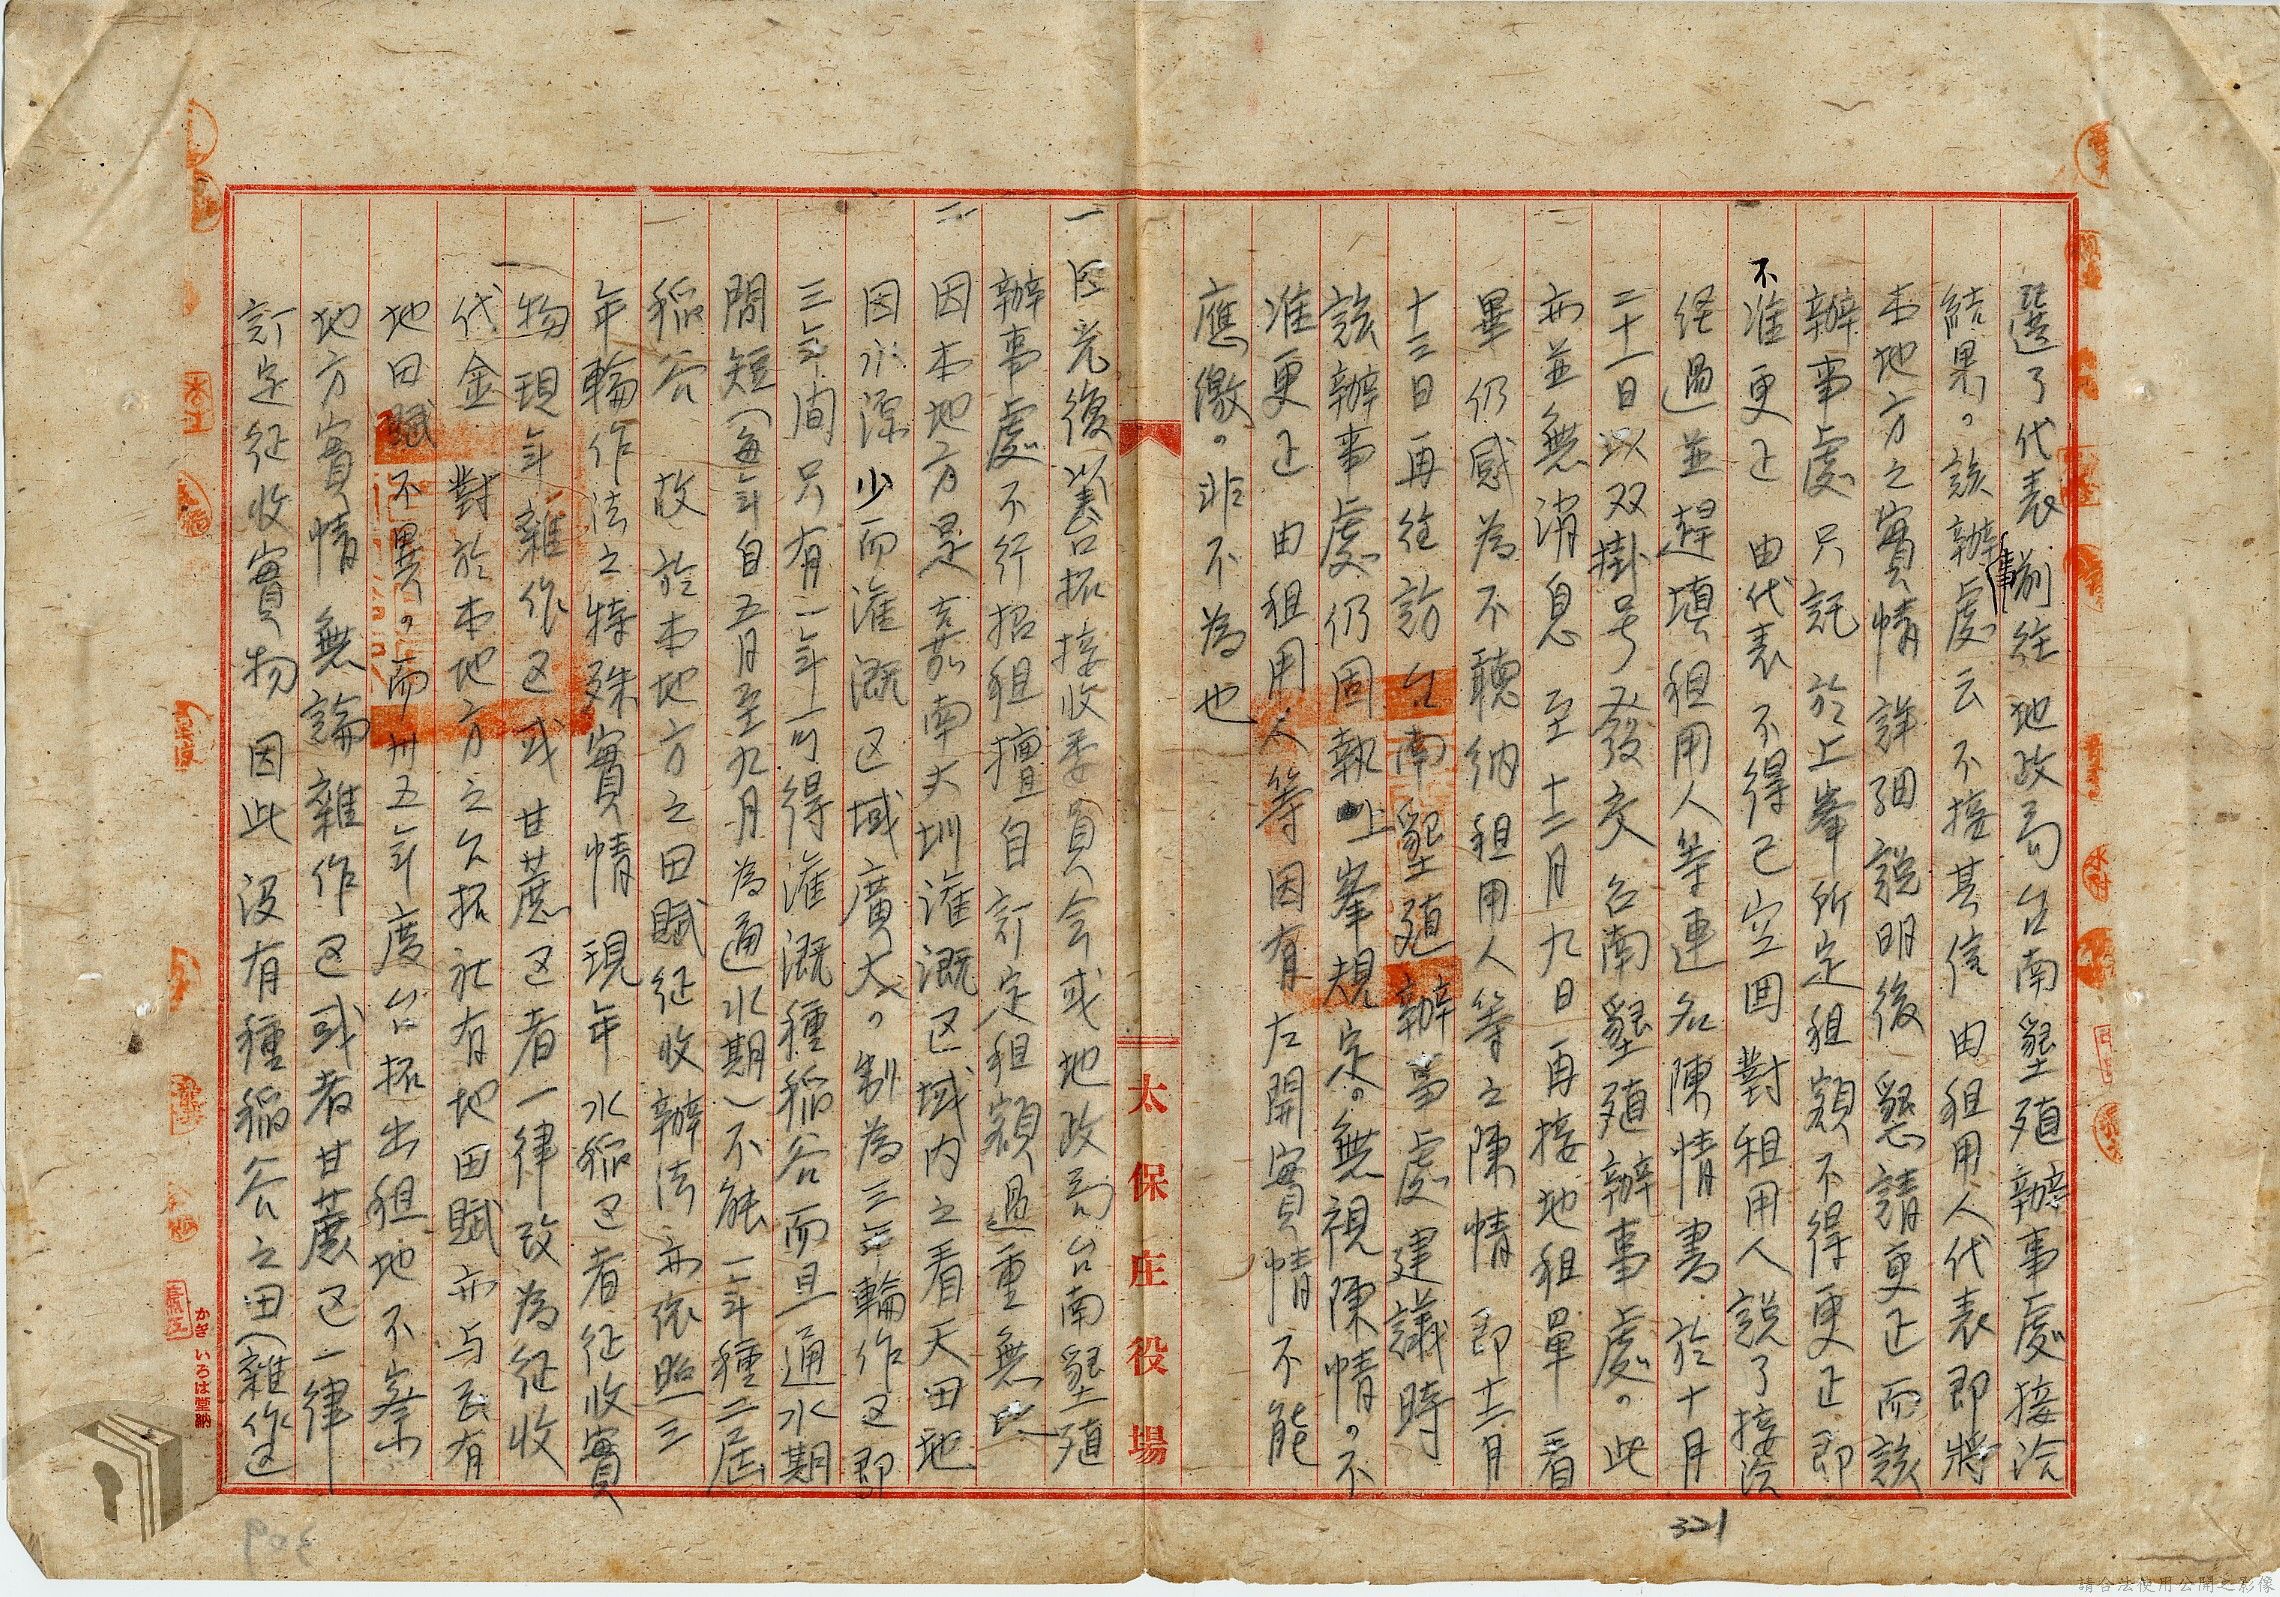 選了代表前往地政局台南墾殖辦事處接洽
結果。該辦事處云不接其信由租用人代表即將
本地方之實情詳細說明後懇請更正而該
辦事處只託於上峯所定租額不得更正即
不准更正由代表不得已空囬對租用人說了接洽
経過並趕填租用人等連名陳情書於十月
二十一日以双掛号發交台南墾殖辦事處。此
亦並無消息至十二月九日再接地租單看
畢仍感為不聽納租用人等之陳情即十二月
十三日再往訪台南墾殖辦事處建議時
該辦事處仍固執上峯規定。無視陳情。不
准更正由租用人等因有左開實情不能
應繳。非不為也
太保庄役場
一因光復以後台拓接收委員会或地政局台南墾殖
辦事處不行招租擅自訂定租額過重無比
二因本地方是嘉南大圳灌溉区域内之看天田地
因水源少而灌溉区域廣大。制為三年輪作区即
三年间只有一年可得灌溉種稲谷而且通水期
間短(每年自五月至九月為通水期)不能一年種二屆
稲谷故於本地方之田賦征收辦法亦依照三
年輪作法之特殊實情現年水稲区者征收實
物現年雜作区或甘蔗区者一律改為征收
代金對於本地方之台拓社有地田賦亦与民有
地田賦不異。而卅五年度台拓出租地不察
地方實情無論雜作区或者甘蔗区一律
訂定征收實物因此沒有種稲谷之田(雜作区
かぎ いろは堂納
321
309
請合法使用公開之影像